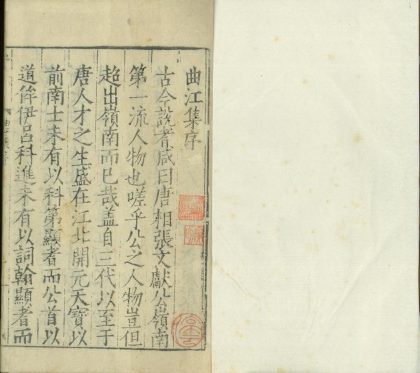 曲江集序
古今說者咸曰唐相張文獻公嶺南
第一流人物也嗟乎公之人物豈但
超出嶺南而已哉蓋自三代以至于
唐人才之生盛在江北開元天寶以
前南士未有以科第顯者而公首以
道侔伊呂科進未有以詞翰顯者而